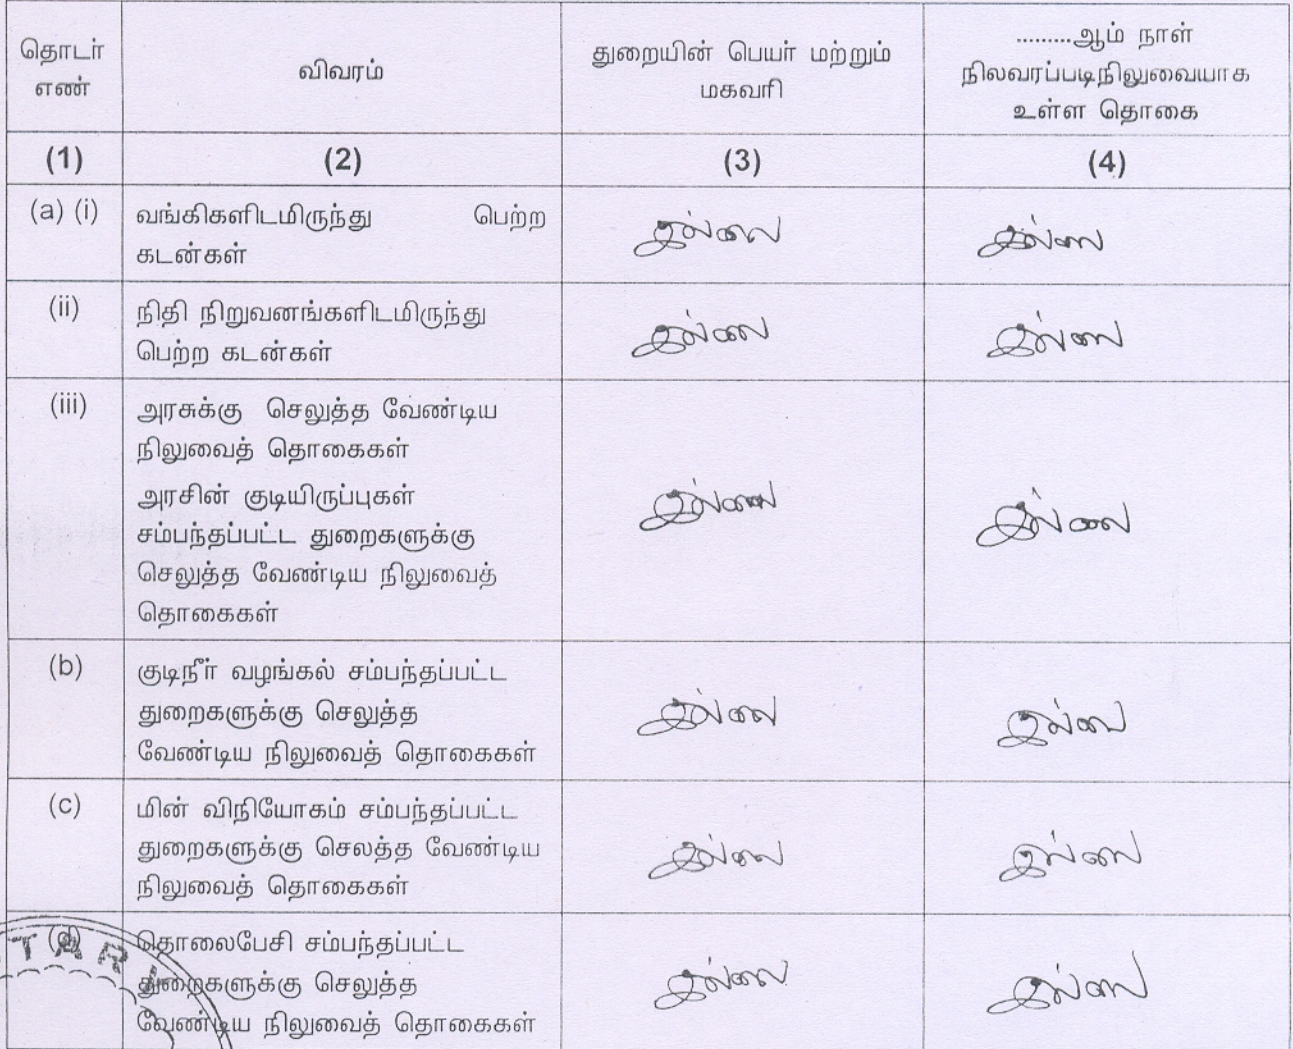 தொடர்
எண்
விவரம்
துறையின் பெயர் மற்றும்
மகவரி
.........ஆம் நாள்
நிலவரப்படிநிலுவையாக
உள்ள தொகை
(1) (2) (3) (4)
(a) (i) வங்கிகளிடமிருந்து பெற்ற
கடன்கள்
இல்லை இல்லை
(ii) நிதி நிறுவனங்களிடமிருந்து
பெற்ற கடன்கள்
இல்லை இல்லை
(iii) அரசுக்கு செலுத்த வேண்டிய
நிலுவைத் தொகைகள்
அரசின் குடியிருப்புகள்
சம்பந்தப்பட்ட துறைகளுக்கு
செலுத்த வேண்டிய நிலுவைத்
தொகைகள்
இல்லை இல்லை
(b) குடிநீர் வழங்கல் சம்பந்தப்பட்ட
துறைகளுக்கு செலுத்த
வேண்டிய நிலுவைத் தொகைகள்
இல்லை இல்லை
(c) மின் விநியோகம் சம்பந்தப்பட்ட
துறைகளுக்கு செலத்த வேண்டிய
நிலுவைத் தொகைகள்
இல்லை இல்லை
(d) தொலைபேசி சம்பந்தப்பட்ட
துறைகளுக்கு செலுத்த
வேண்டிய நிலுவைத் தொகைகள்
இல்லை இல்லை
TARY